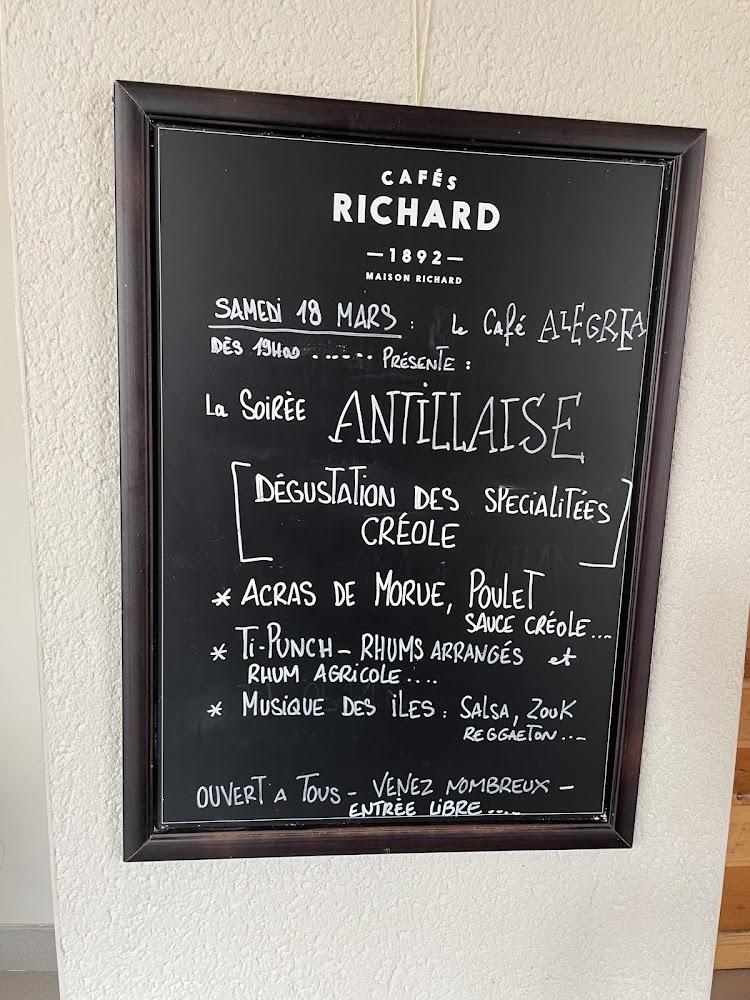 CAFÉS
RICHARD
—1892—
MAISON RICHARD
SAMEDI 18 MARS : Le Café ALEGREA
DÈS 19H00 ...... PRÉSENTE :
La SOIRÈE ANTILLAISE
[DÉGUSTATION DES SPECIALITÉES
CRÉOLE]
* ACRAS DE MORUE, POULET
SAUCE CRÉOLE....
* TI-PUNCH - RHUMS ARRANGÉS et
RHUM AGRICOLE....
* MUSIQUE DES ÎLES : SALSA, ZOUK
REGGAETON...
OUVERT A TOUS - VENEZ NOMBREUX -
ENTRÈE LIBRE....